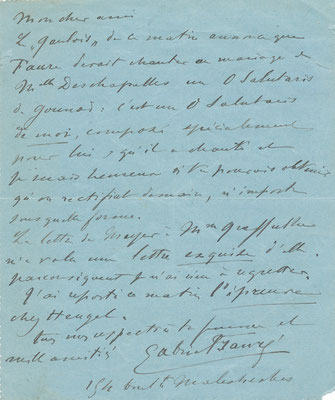 Mon cher ami
Le "Gaulois" de ce matin annonce que
Faure devait chanter au mariage de
Mlle Deschapelles un O Salutaris
de Gounod: c'est un O Salutaris
de moi, composé spécialement
pour lui, qu'il a chanté et
je serais heureux si tu pouvais obtenir
qu'on rectifiât demain, n'importe
sous quelle forme.
La lettre de Meyer à Mme Greffulhe
m'a valu une lettre exquise d'elle.
par conséquent je n'ai rien à regretter.
J'ai reporté ce matin l'épreuve
chez Heugel.
Tous mes respects à ta femme et
mille amitiés
Gabriel Fauré
154 boult Malesherbes